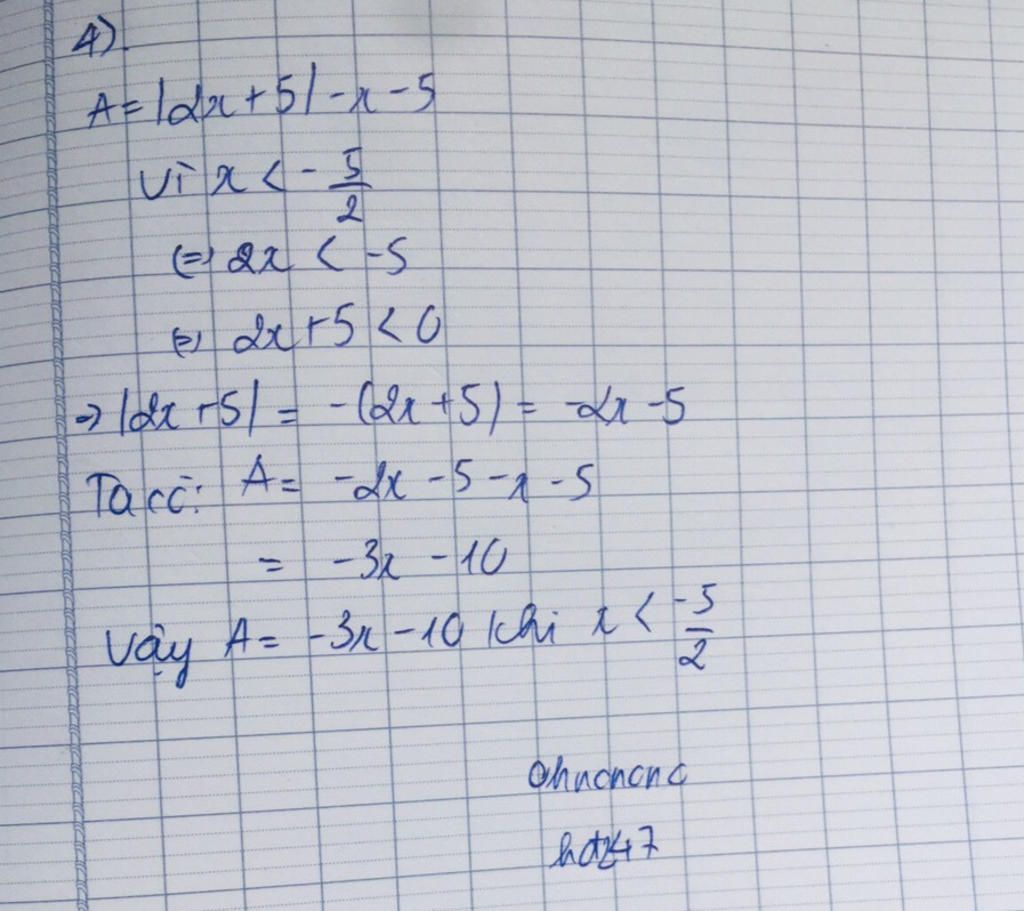 4).
A = |2x + 5| - x - 5
Vì x < - 5/2
(=) 2x < -5
(=) 2x + 5 < 0
=> |2x + 5| = -(2x + 5) = -2x - 5
Ta có: A = -2x - 5 - x - 5
= -3x - 10
Vậy A = -3x - 10 khi x < -5/2